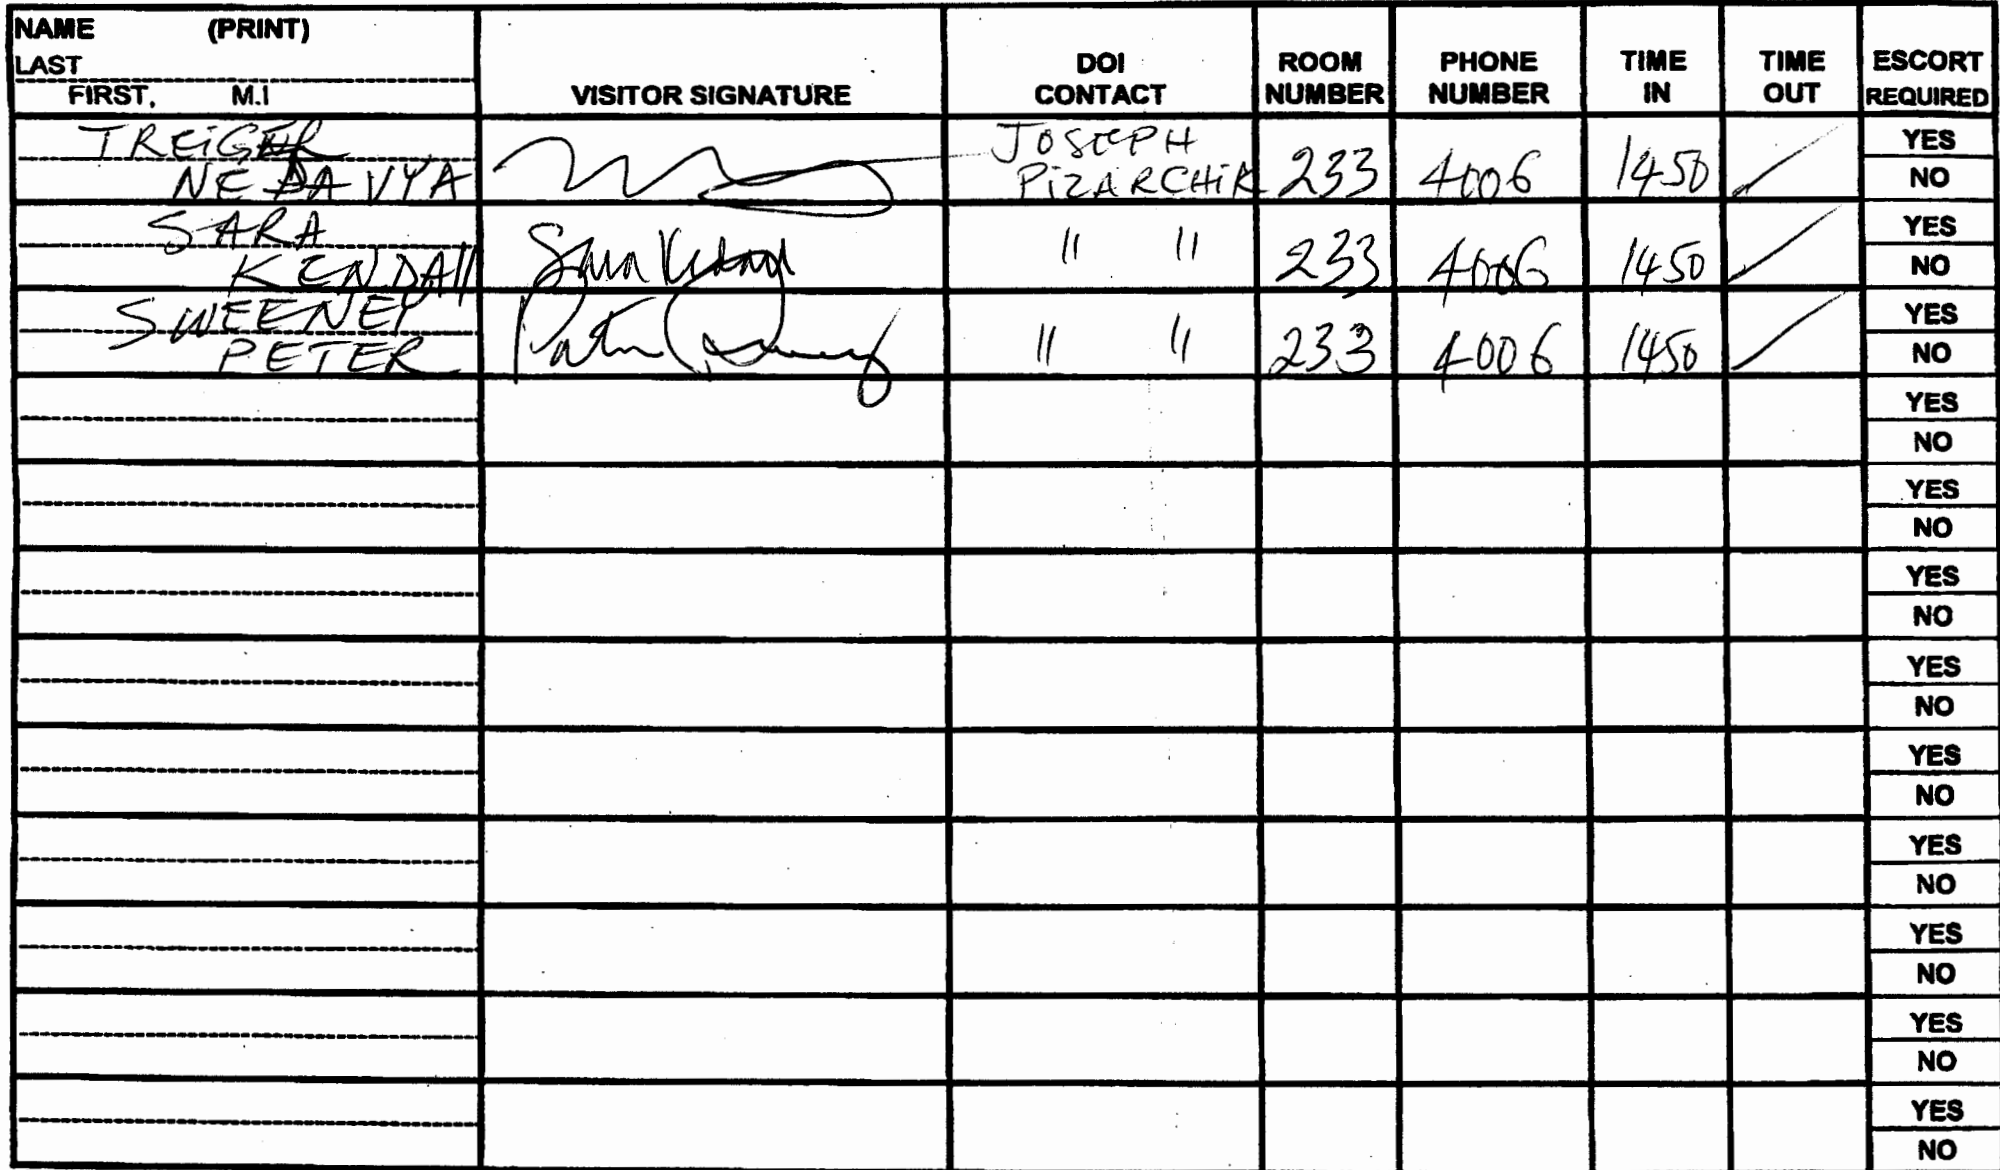 NAME (PRINT)
LAST
FIRST, M.I
VISITOR SIGNATURE
DOI CONTACT
ROOM NUMBER
PHONE NUMBER
TIME IN
TIME OUT
ESCORT REQUIRED
TREIGER JOSEPH YES
NEDAVYA PIZARCHIK 233 4006 1450 NO
SARA YES
KENDAll Sara Kendall " " 233 4006 1450 NO
SWEENEY YES
PETER " " 233 4006 1450 NO
YES
NO
YES
NO
YES
NO
YES
NO
YES
NO
YES
NO
YES
NO
YES
NO
YES
NO